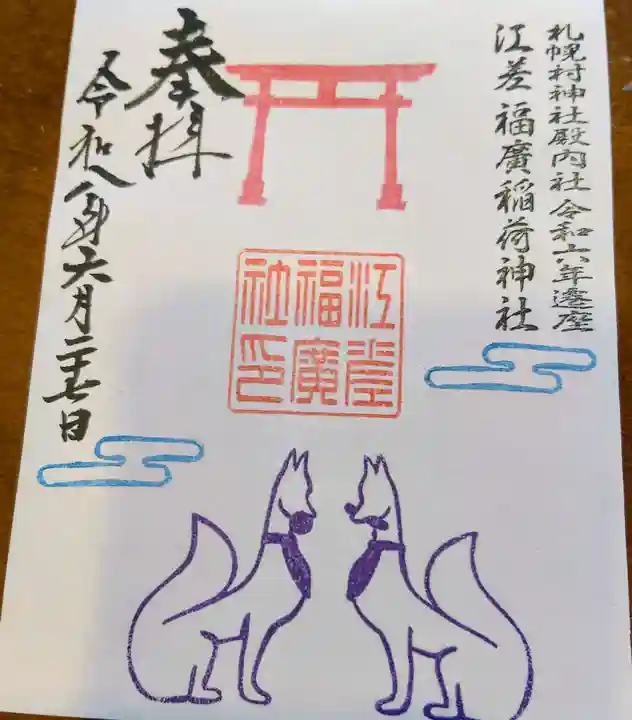 札幌村神社殿内社 令和六年遷座
江差 福廣稲荷神社
奉拝
江差
福廣
社印
令和八年六月二十七日